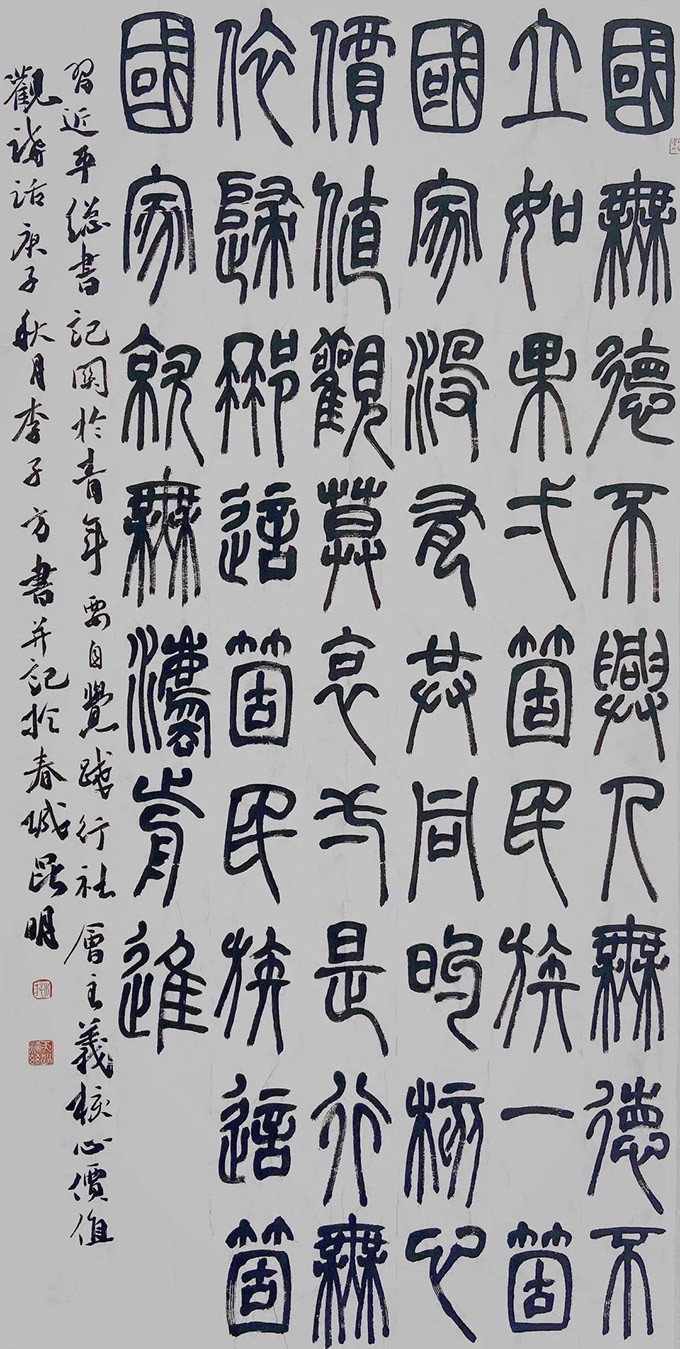 國無德不興人無德不
立如果弌箇民族一箇
國家沒有共同的核心
價值觀莫衷弌是行無
依歸那這箇民族這箇
國家就無灋前進
習近平総書記関於青年要自覺踐行社會主義核心價值
觀講話庚子秋月李子方書并記於春城昆明